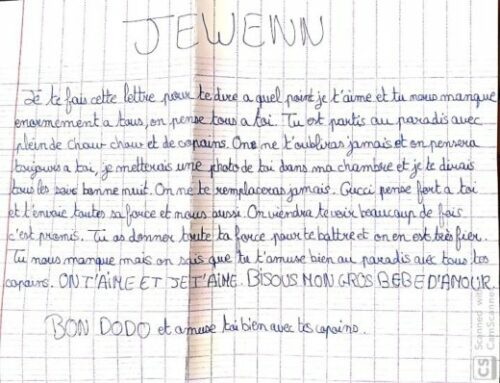 JEWENN
Je te fais cette lettre pour te dire a quel point je t'aime et tu nous manque
enormement a tous, on pense tous a toi. Tu est partis au paradis avec
plein de chouw chouw et de copains. On ne t'oubliras jamais et on pensera
toujours a toi, je metterais une photo de toi dans ma chambre et je te dirais
tous les soirs bonne nuit. On ne te remplaceras jamais. Gucci pense fort a toi
et t'envoie toutes sa force et nous aussi. On viendra te voir beaucoup de fois
c'est promis. Tu as donner toute ta force pour te battre et on en est très fier.
Tu nous manque mais on sais que tu t'amuse bien au paradis avec tous tes
copains. ON T'AIME ET JE T'AIME. BISOUS MON GROS BEBE D'AMOUR.
BON DODO et amuse toi bien avec tes copains.
CS Scanned with
CamScanner